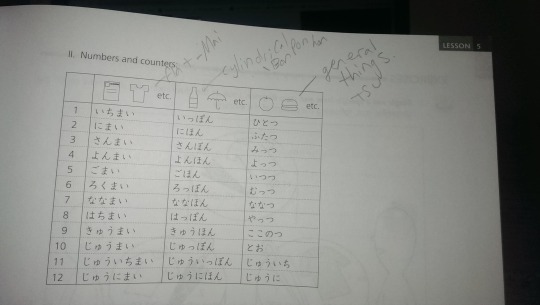 LESSON 5
II. Numbers and counters
flat - Mai
cylindical
general
things.
etc. etc. etc.
1 いちまい いっぽん ひとつ
2 にまい にほん ふたつ
3 さんまい さんぼん みっつ
4 よんまい よんほん よっつ
5 ごまい ごほん いつつ
6 ろくまい ろっぽん むっつ
7 ななまい ななほん ななつ
8 はちまい はっぽん やっつ
9 きゅうまい きゅうほん ここのつ
10 じゅうまい じゅっぽん とお
11 じゅういちまい じゅういっぽん じゅういち
12 じゅうにまい じゅうにほん じゅうに